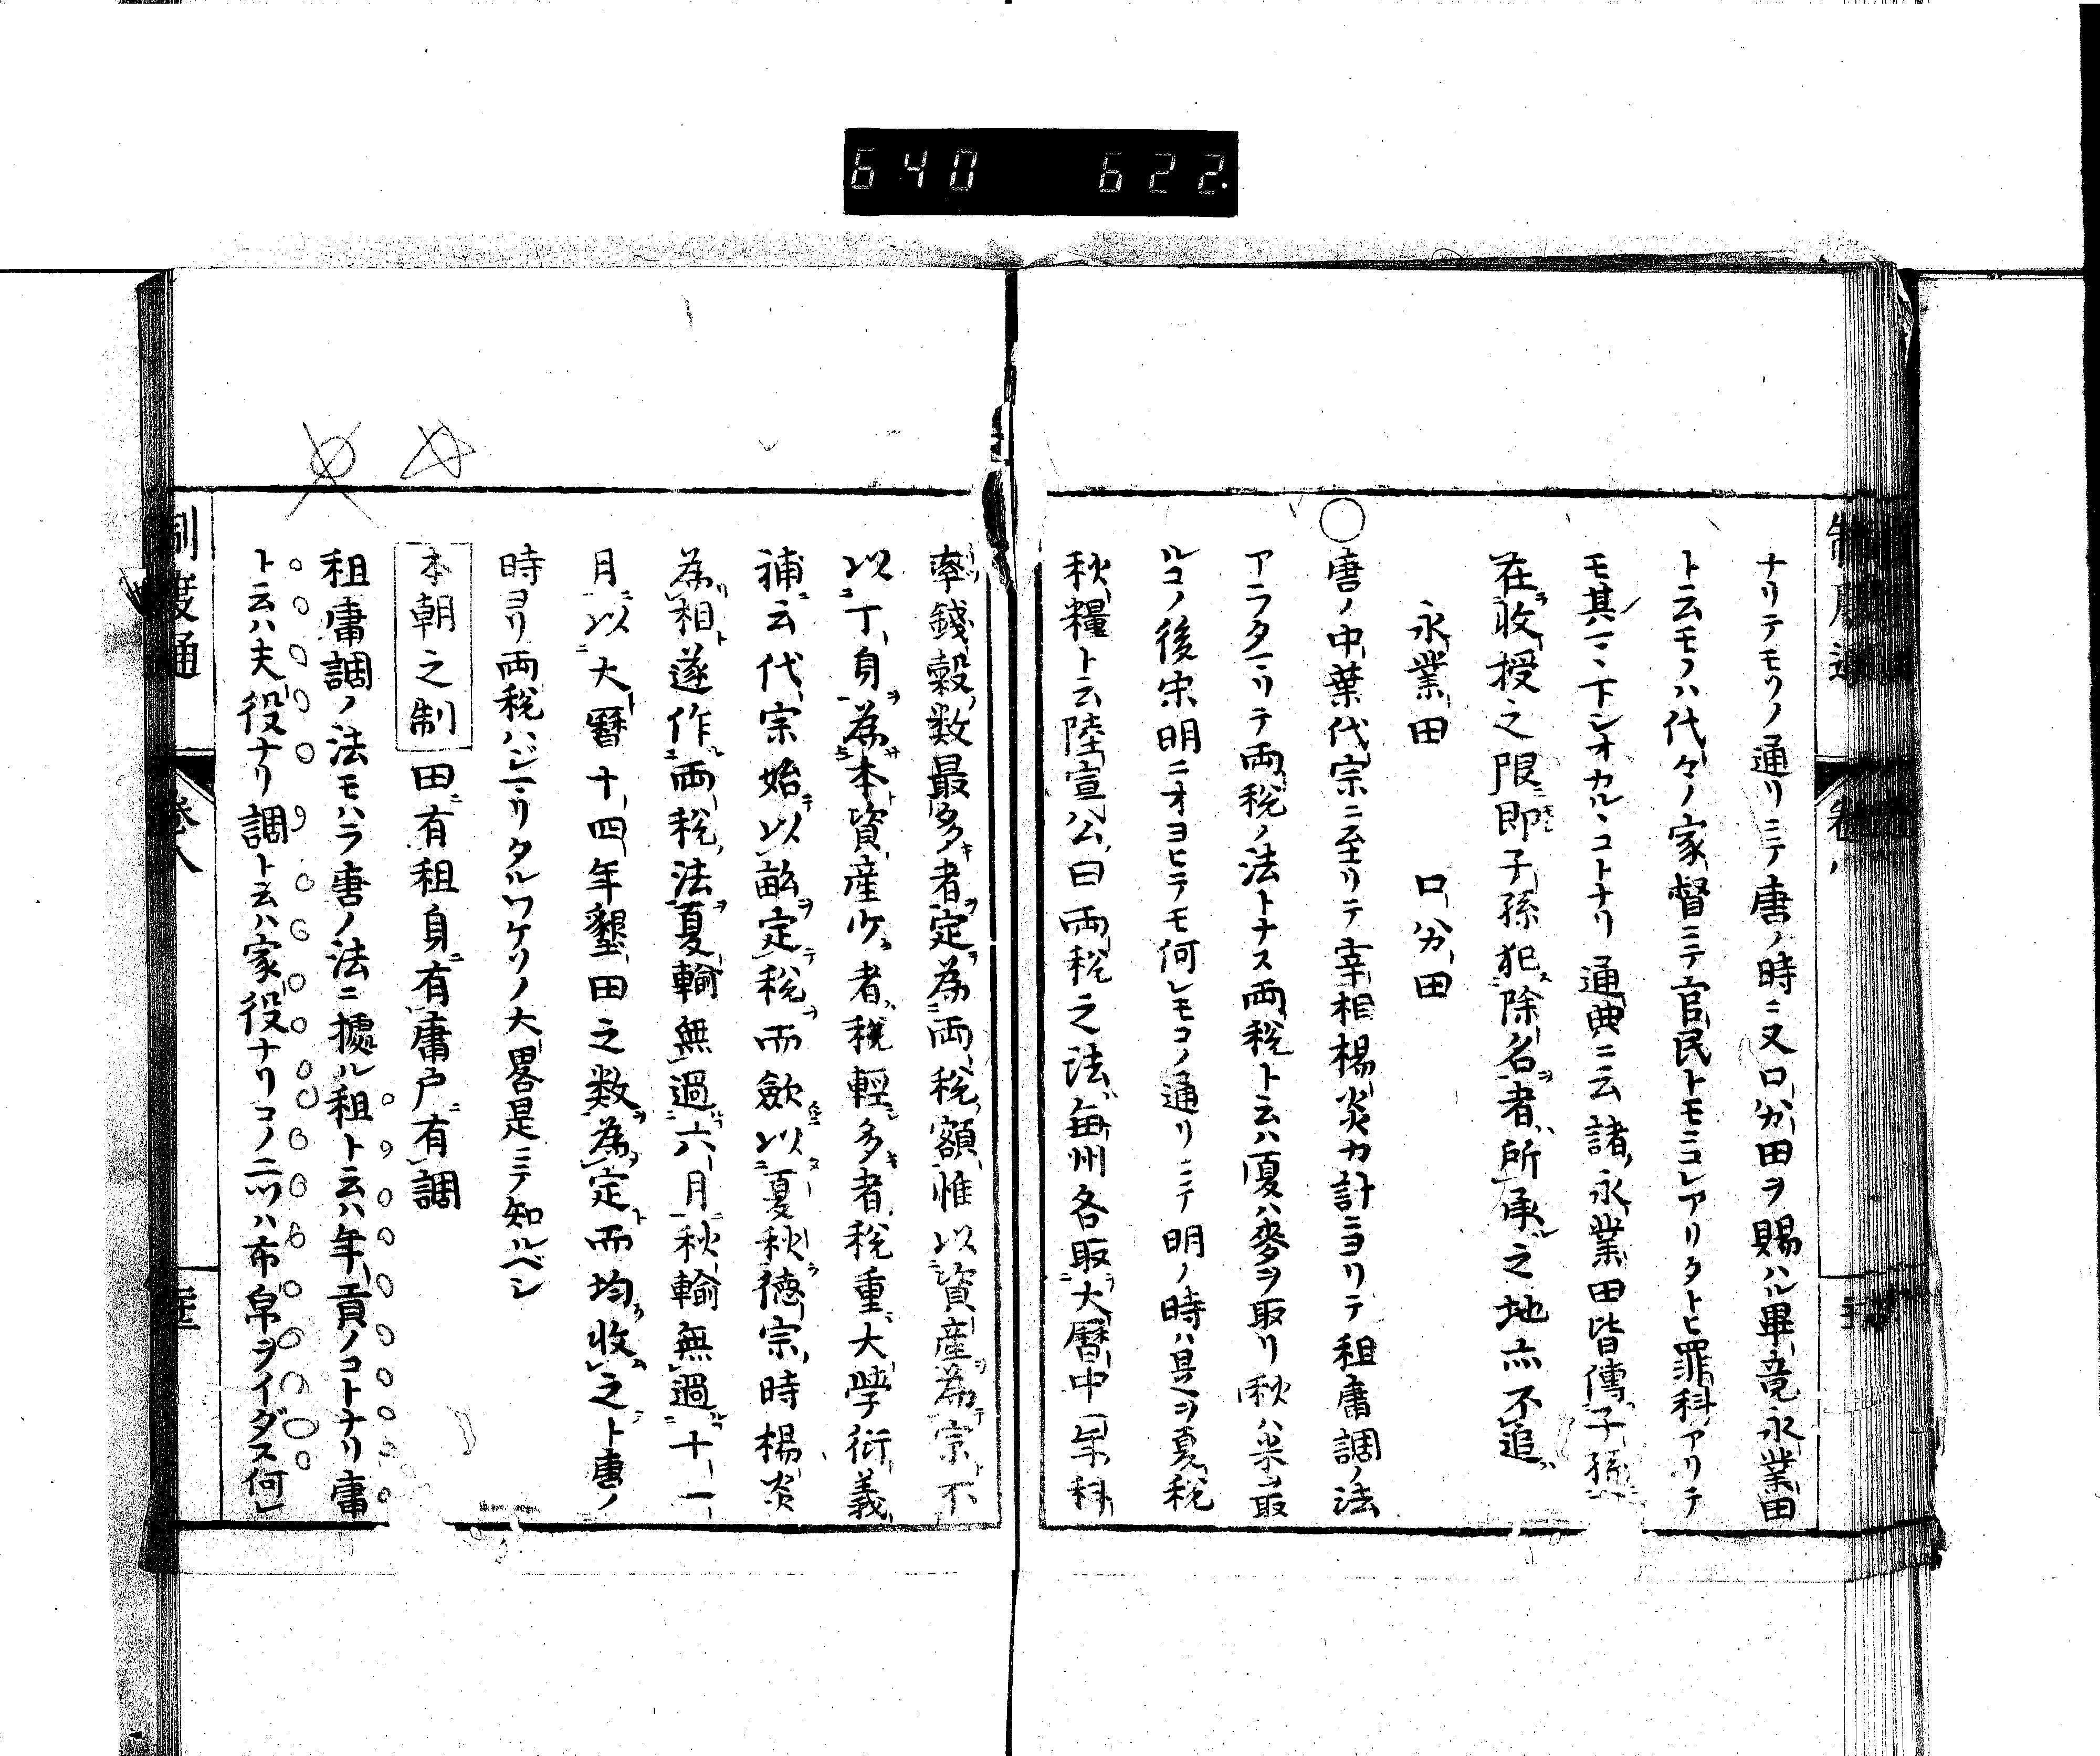 640 622.
制度通 卷八
ナリテモワノ通リニテ唐ノ時ニ又口分田ヲ賜ハル畢竟永業田
ト云モノハ代々ノ家督ニテ官民トモニコレアリタトヒ罪科アリテ
モ其マヽ下シオカルヽコトナリ通典ニ云諸永業田皆傳子孫不
在收授之限即子孫犯除名者所承之地亦不追
永業田 口分田
○唐ノ中葉代宗ニ至リテ宰相楊炎カ計ニヨリテ租庸調ノ法
アラタマリテ両税ノ法トナス両税ト云ハ夏ハ麥ヲ取リ秋ハ米取
ルコノ後宋明ニオヨヒテモ何レモコノ通リニテ明ノ時ハ是ヲ夏税
秋糧ト云陸宣公曰両税之法毎州各取大暦中一年科
率錢穀数最多者定為両税額惟以資産為宗不
以丁身為本資産少者税輕多者税重大學衍義
補云代宗始以畝定税而歛以夏秋德宗時楊炎
為相遂作両税法夏輸無過六月秋輸無過十一
月以大暦十四年墾田之数為定而均收之ト唐ノ
時ヨリ両税ハジマリタルワケソノ大畧是ニテ知ルベシ
本朝之制 田有租身有庸户有調
租庸調ノ法モハラ唐ノ法ニ據ル租ト云ハ年貢ノコトナリ庸
ト云ハ夫役ナリ調ト云ハ家役ナリコノ二ツハ布帛ヲイダス何レ
制度通 卷八